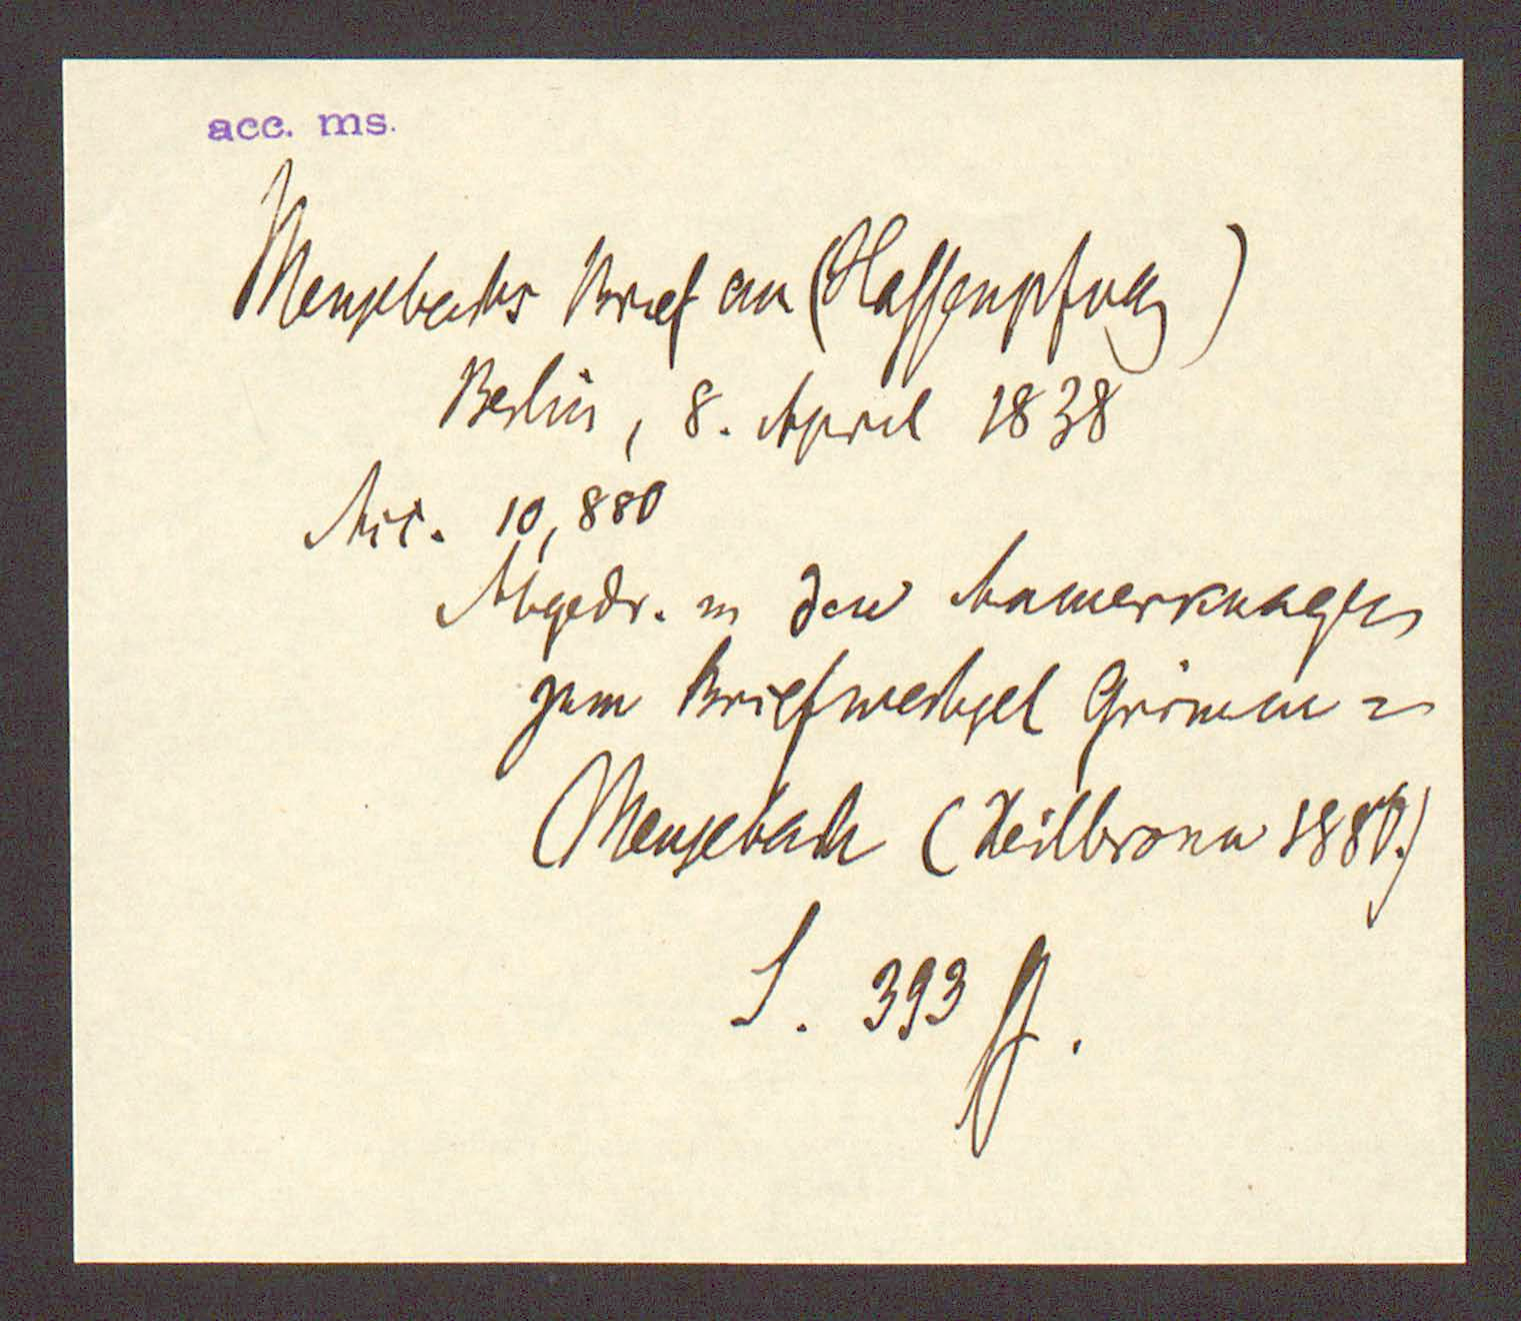 acc. ms.
Meusebachs Brief an (Hassenpflug)
Berlin, 8. April 1838
Acc. 10,880
Abgedr. in den Anmerkungen
zum Briefwechsel Grimm =
Meusebach (Heilbronn 1880.)
S. 393 ff.